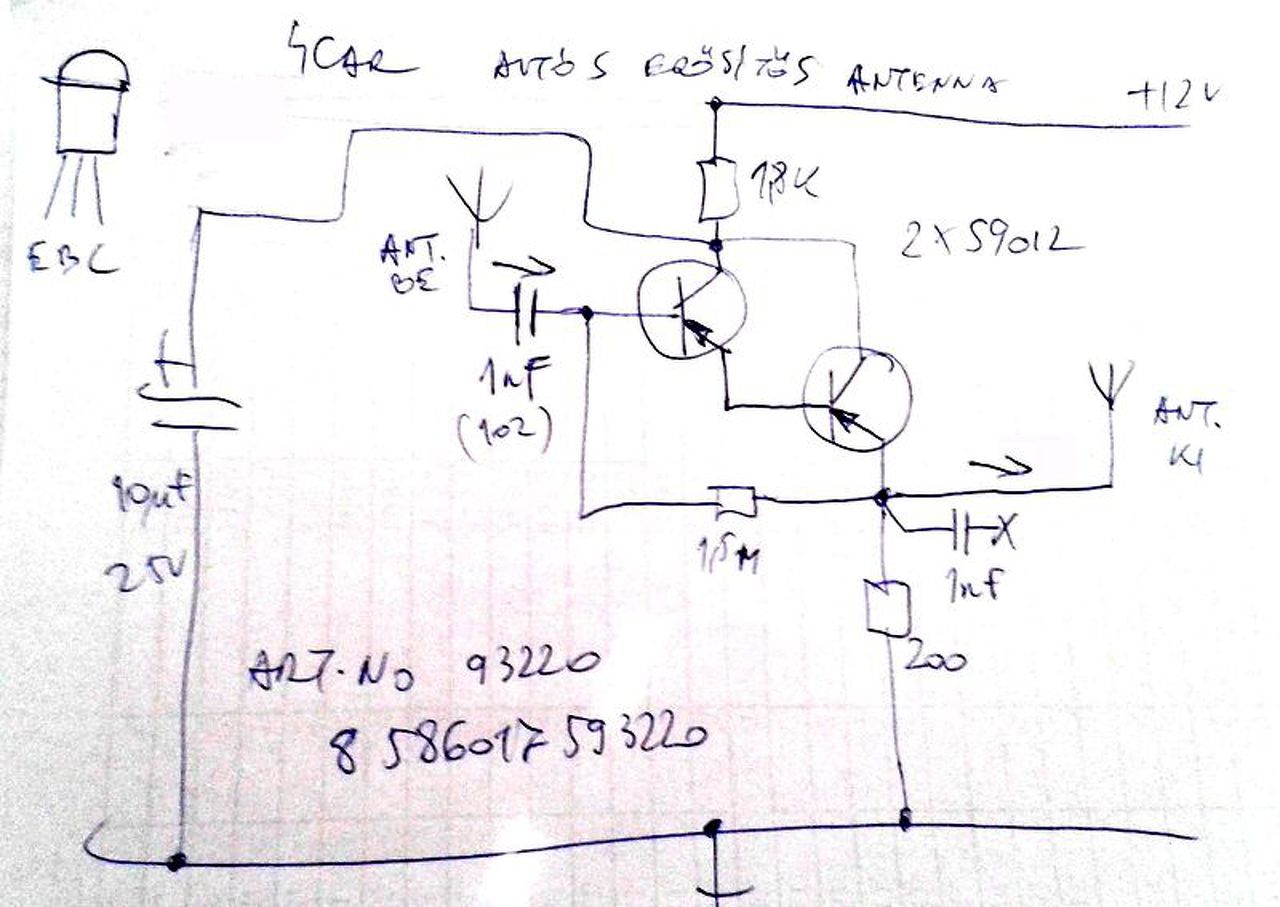 4CAR AUTÓS ERŐSÍTŐS ANTENNA
+12V
1,8K
2XS9012
EBC
ANT.
BE
1nF
(102)
ANT.
KI
10µF
25V
1,5M
1nF
200
ART.No 93220
8 586017 593220